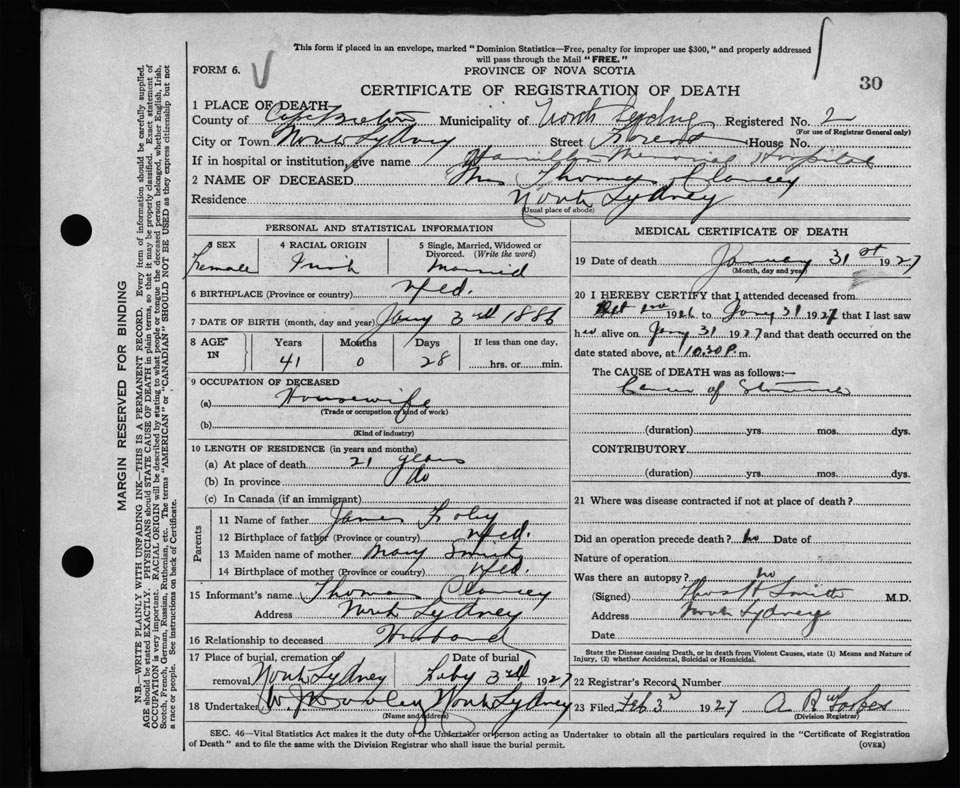 This form if placed in an envelope, marked "Dominion Statistics—Free, penalty for improper use $300," and properly addressed
will pass through the Mail "FREE."
FORM 6.
PROVINCE OF NOVA SCOTIA
30
CERTIFICATE OF REGISTRATION OF DEATH
1 PLACE OF DEATH
County of Cape Breton Municipality of North Sydney Registered No. 2
(For use of Registrar General only)
City or Town North Sydney Street House No.
If in hospital or institution, give name Hamilton Memorial Hospital
2 NAME OF DECEASED Mrs Thomas Clancey
Residence North Sydney
(Usual place of abode)
PERSONAL AND STATISTICAL INFORMATION
3 SEX 4 RACIAL ORIGIN 5 Single, Married, Widowed or Divorced. (Write the word)
Female Irish Married
6 BIRTHPLACE (Province or country) Nfld.
7 DATE OF BIRTH (month, day and year) Jany 3rd 1886
8 AGE IN Years Months Days If less than one day,
41 0 28 hrs. or min.
9 OCCUPATION OF DECEASED
(a) Housewife
(Trade or occupation or kind of work)
(b)
(Kind of industry)
10 LENGTH OF RESIDENCE (in years and months)
(a) At place of death 21 years
(b) In province do
(c) In Canada (if an immigrant)
Parents
11 Name of father James
12 Birthplace of father (Province or country) Nfld.
13 Maiden name of mother Mary Smith
14 Birthplace of mother (Province or country) Nfld.
15 Informant's name Thomas Clancey
Address North Sydney
16 Relationship to deceased Husband
17 Place of burial, cremation Date of burial
removal North Sydney Feby 3rd 1927
18 Undertaker North Sydney
(Name and address)
MEDICAL CERTIFICATE OF DEATH
19 Date of death January 31st 1927
(Month, day and year)
20 I HEREBY CERTIFY that I attended deceased from
1926 to Jany 31 1927 that I last saw
her alive on Jany 31 1927 and that death occurred on the
date stated above, at 10.30 P.m.
The CAUSE of DEATH was as follows:—
Cancer of Stomach
(duration) yrs. mos. dys.
CONTRIBUTORY
(duration) yrs. mos. dys.
21 Where was disease contracted if not at place of death?
Did an operation precede death? no Date of
Nature of operation
Was there an autopsy? no
(Signed) Thos H Smith M.D.
Address North Sydney
Date
State the Disease causing Death, or in death from Violent Causes, state (1) Means and Nature of
Injury, (2) whether Accidental, Suicidal or Homicidal.
22 Registrar's Record Number
23 Filed Feb 3rd 1927 Forbes
(Division Registrar)
SEC. 46—Vital Statistics Act makes it the duty of the Undertaker or person acting as Undertaker to obtain all the particulars required in the "Certificate of Registration
of Death" and to file the same with the Division Registrar who shall issue the burial permit. (OVER)
MARGIN RESERVED FOR BINDING
N.B.—WRITE PLAINLY WITH UNFADING INK—THIS IS A PERMANENT RECORD. Every item of information should be carefully supplied.
AGE should be stated EXACTLY. PHYSICIANS should STATE CAUSE OF DEATH in plain terms, so that it may be properly classified. Exact statement of
OCCUPATION is very important. RACIAL ORIGIN will be described by stating to what people or tongue the deceased person belonged, whether English, Irish,
Scotch, French, German, Russian, Ruthenian, etc. The terms "AMERICAN" or "CANADIAN" SHOULD NOT BE USED as they express citizenship but not
a race or people. See instructions on back of Certificate.